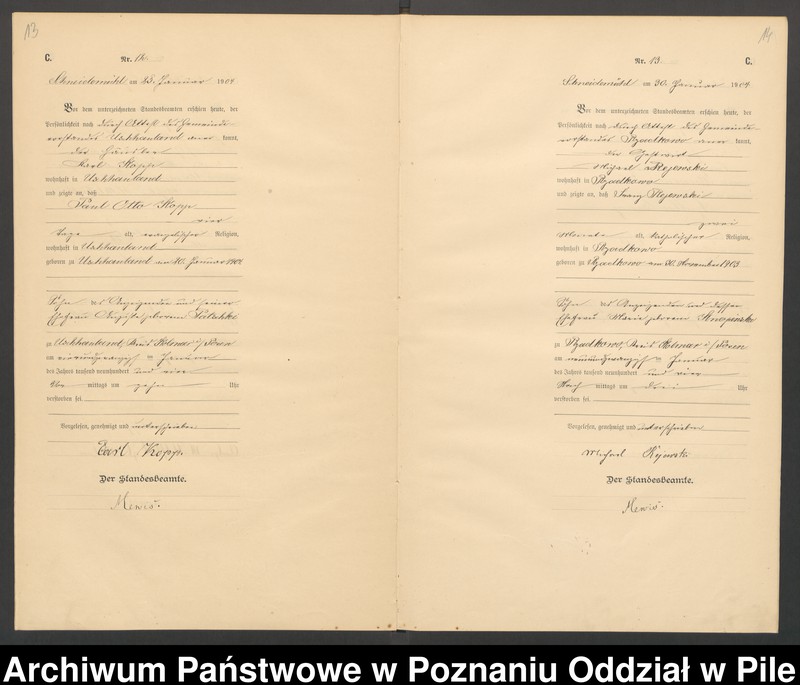 13
C.
Nr. 12.
Schneidemühl am 25. Januar 1904
Vor dem unterzeichneten Standesbeamten erschien heute, der
Persönlichkeit nach durch Attest des Gemeinde-
vorstandes Uschhauland aner kannt,
der Häusler
Karl Kopp
wohnhaft in Uschhauland
und zeigte an, daß
Paul Otto Kopp
vier
Tage alt, evangelischer Religion,
wohnhaft in Uschhauland
geboren zu Uschhauland am 20. Januar 1904
Sohn des Anzeigenden und seiner
Ehefrau Auguste geborenen
zu Uschhauland, Kreis Kolmar i/Posen
am vierundzwanzigsten Januar
des Jahres tausend neunhundert und vier
mittags um zehn Uhr
verstorben sei
Vorgelesen, genehmigt und unterschrieben
Carl Kopp.
Der Standesbeamte.
Mewis.
14
Nr. 13.
C.
Schneidemühl am 30. Januar 1904
Vor dem unterzeichneten Standesbeamten erschien heute, der
Persönlichkeit nach durch Attest des Gemeinde-
vorstandes Rzadkowo aner kannt,
der Gastwirt
Michael
wohnhaft in Rzadkowo
und zeigte an, daß Franz
zwei
Monate alt, katholischer Religion,
wohnhaft in Rzadkowo
geboren zu Rzadkowo am 30. November 1903
Sohn des Anzeigenden und dessen
Ehefrau Marie geborenen
zu Rzadkowo, Kreis Kolmar i/Posen
am neunundzwanzigsten Januar
des Jahres tausend neunhundert und vier
Nach mittags um drei Uhr
verstorben sei
Vorgelesen, genehmigt und unterschrieben
Michael
Der Standesbeamte.
Mewis.
Archiwum Państwowe w Poznaniu Oddział w Pile